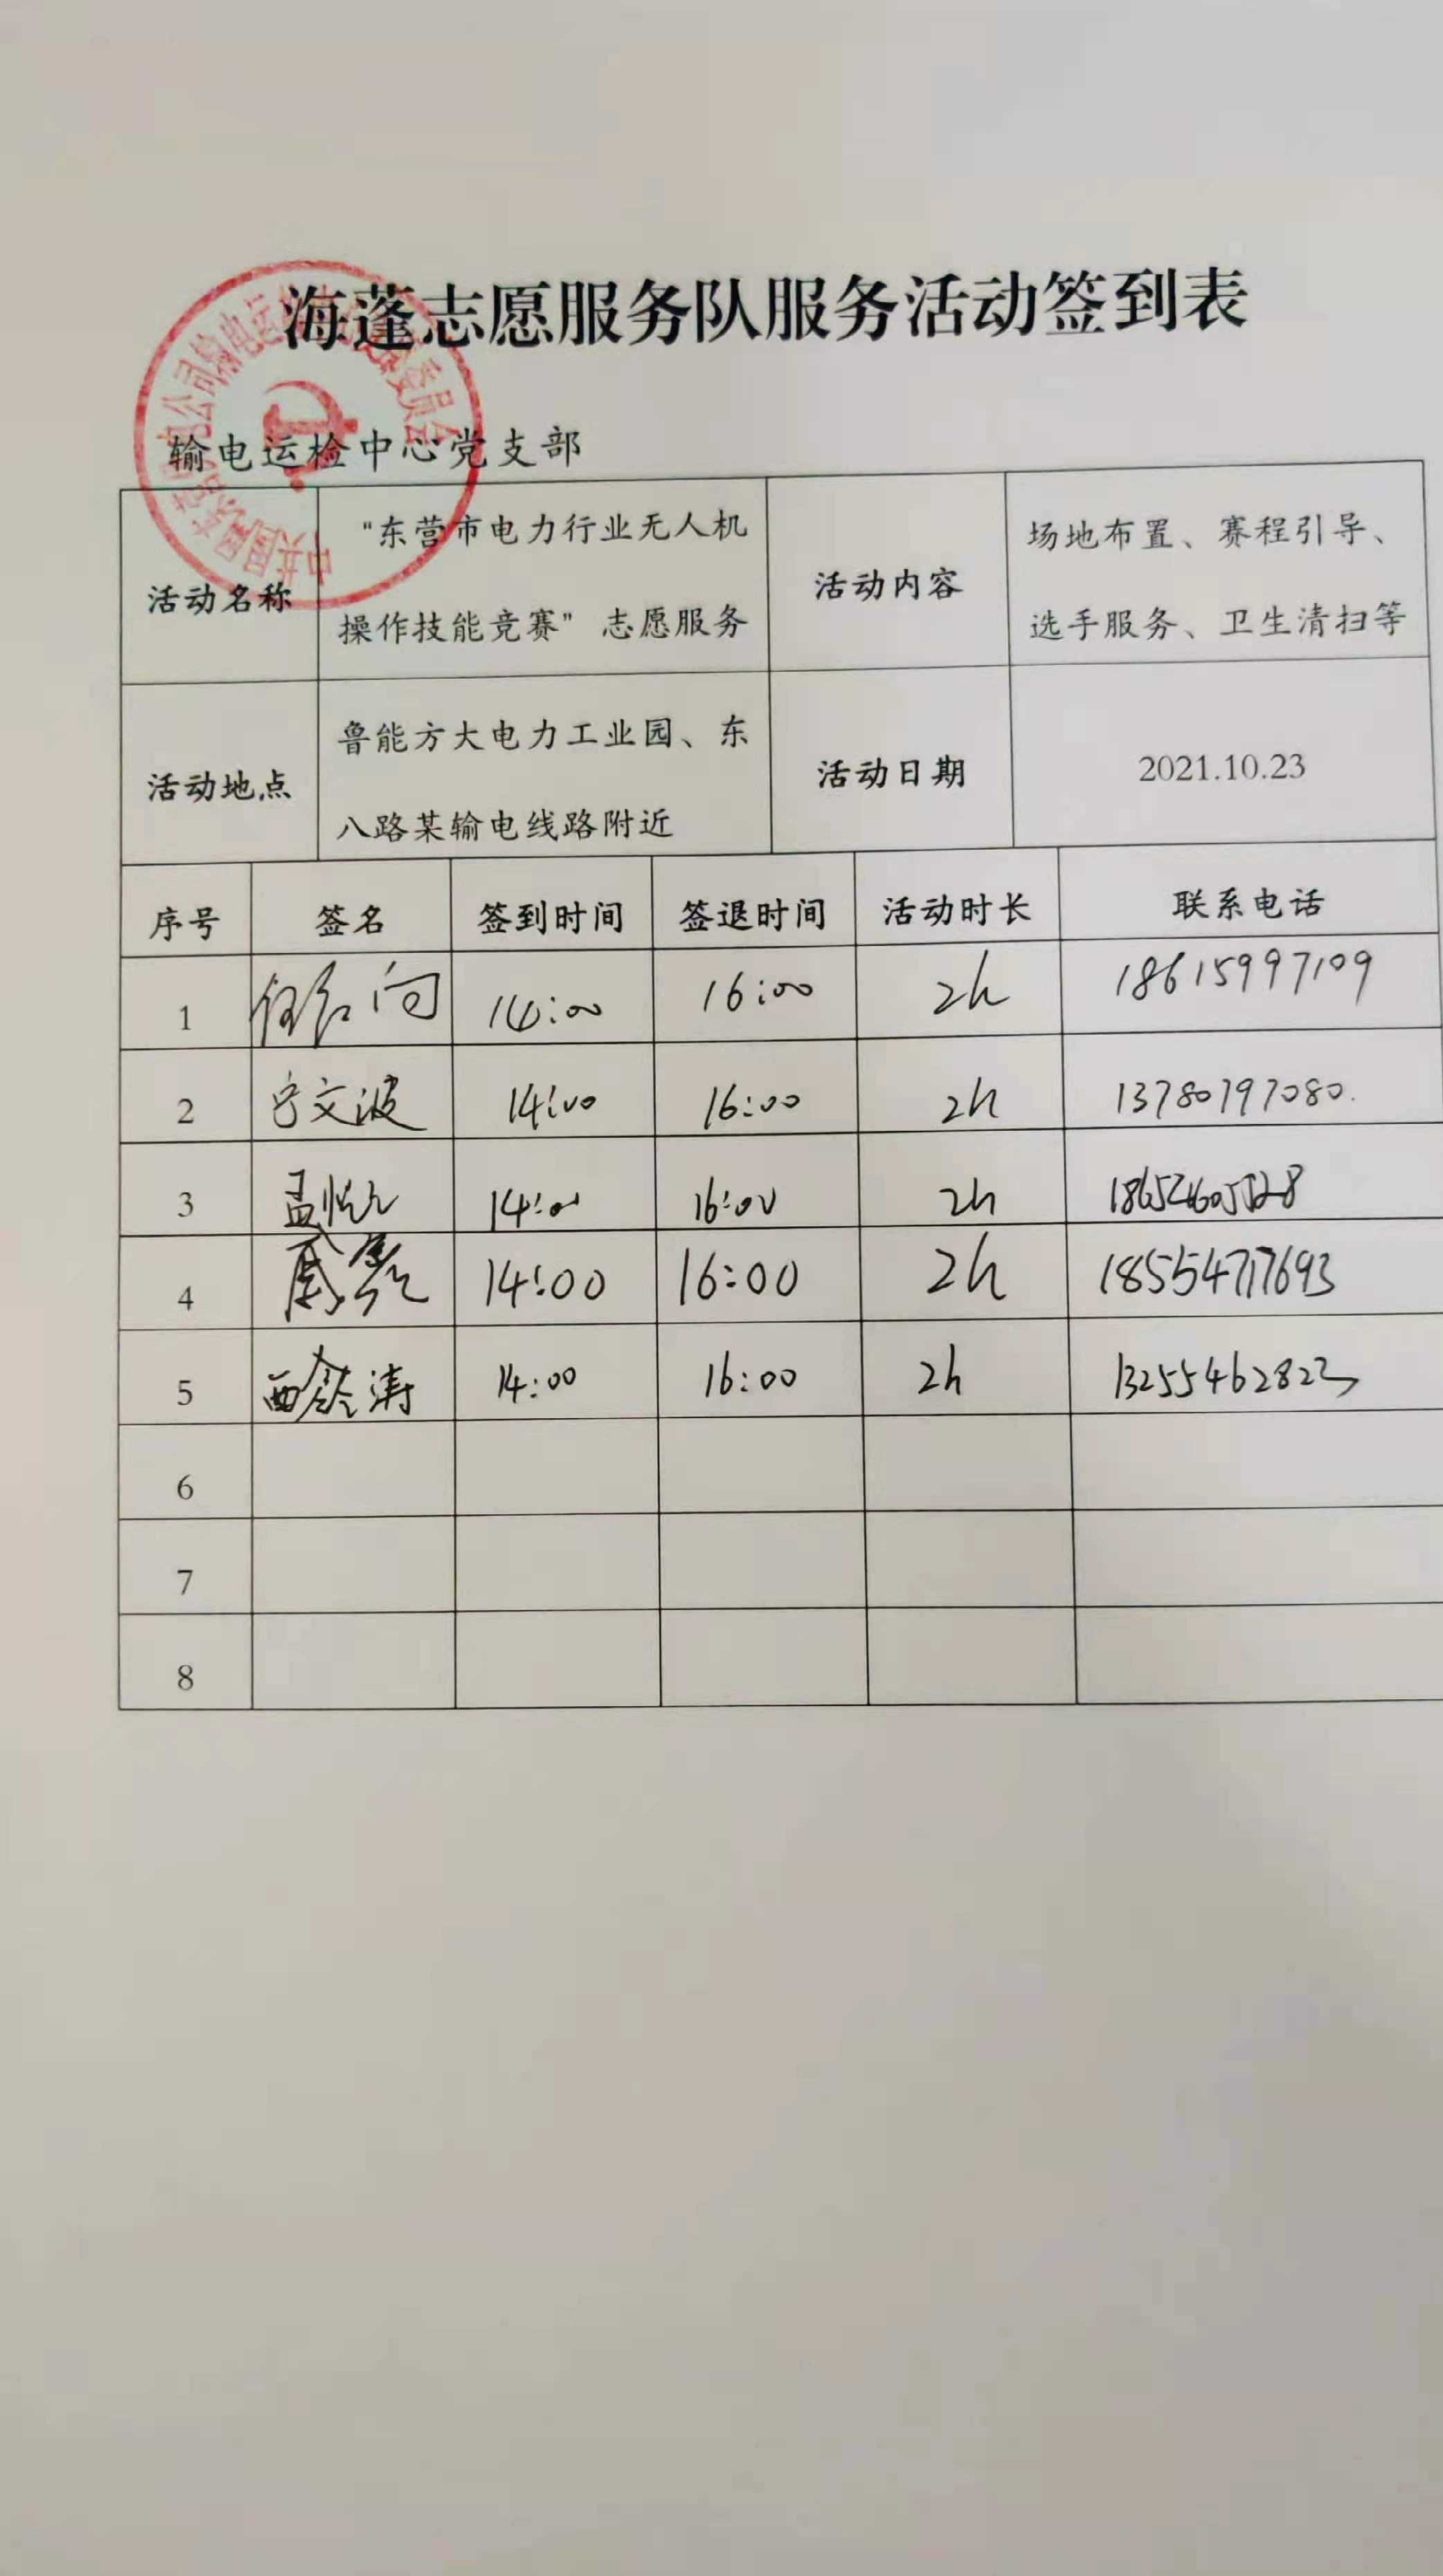 海蓬志愿服务队服务活动签到表
输电运检中心党支部
活动名称
"东营市电力行业无人机
操作技能竞赛" 志愿服务
活动内容
场地布置、赛程引导、
选手服务、卫生清扫等
活动地点
鲁能方大电力工业园、东
八路某输电线路附近
活动日期
2021.10.23
序号 签名 签到时间 签退时间 活动时长 联系电话
1 14:00 16:00 2h 18615997109
2 文波 14:00 16:00 2h 13780797080.
3 孟 14:00 16:00 2h
4 14:00 16:00 2h 18554717693
5 西 涛 14:00 16:00 2h 13255462823
6
7
8